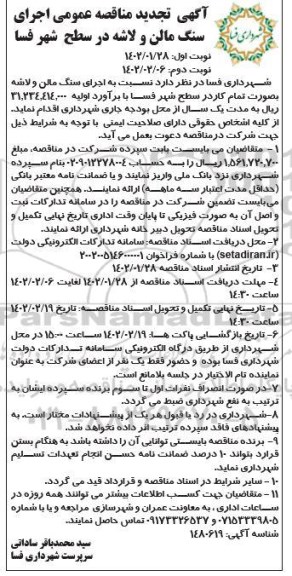 آگهی تجدید مناقصه عمومی اجرای
سنگ مالن و لاشه در سطح شهر فسا
نوبت اول: ۱۴۰۲/۰۱/۲۸
نوبت دوم: ۱۴۰۲/۰۲/۰۶
شهرداری فسا در نظر دارد نسبت به اجرای سنگ مالن و لاشه
بصورت تمام کار در سطح شهر فسا با برآورد اولیه ۳۱,۲۳۴,۴۱۴,۰۰۰
ریال به مدت یک سال از محل بودجه جاری شهرداری اقدام نماید.
از کلیه اشخاص حقوقی دارای صلاحیت ایمنی با توجه به شرایط ذیل
جهت شرکت درمناقصه دعوت بعمل می آید.
۱- متقاضیان می بایست بابت سپرده شرکت در مناقصه، مبلغ
۱,۵۶۱,۷۲۰,۷۰۰ریال را به حساب ۰۲۰۹۰۱۲۲۷۸۰۰۴ بنام سپرده
شهرداری نزد بانک ملی واریز نمایند و یا ضمانت نامه معتبر بانکی
(حداقل مدت اعتبار سه ماهه) ارائه نمایند. همچنین متقاضیان
می‌بایست تضمین شرکت در مناقصه را در سامانه تدارکات ثبت
و اصل آن به صورت فیزیکی تا پایان وقت اداری تاریخ نهایی تکمیل و
تحویل اسناد مناقصه تحویل دبیر خانه شهرداری ارائه نمایند.
۲- محل دریافت اسناد مناقصه: سامانه تدارکات الکترونیکی دولت
(setadiran.ir) با شماره فراخوان ۲۰۰۲۰۰۵۱۴۶۰۰۰۰۰۱
۳- تاریخ انتشار اسناد مناقصه ۱۴۰۲/۰۱/۲۸
۴- مهلت دریافت اسناد مناقصه از ۱۴۰۲/۰۱/۲۸ لغایت ۱۴۰۲/۰۲/۰۶
ساعت ۱۴:۳۰
۵- تاریخ نهایی تکمیل و تحویل اسناد مناقصه: تاریخ ۱۴۰۲/۰۲/۱۹
ساعت ۱۴:۳۰
۶- تاریخ بازگشایی پاکت ها: ۱۴۰۲/۰۲/۱۹ ساعت ۱۵:۰۰ در محل
شهرداری از طریق درگاه الکترونیکی سامانه تدارکات دولت
شهرداری فسا بوده و حضور فقط یک نفر از اعضای شرکت به عنوان
نماینده تام الاختیار در جلسه بلامانع است.
۷- در صورت انصراف نفرات اول تا سوم برنده سپرده ایشان به
ترتیب به نفع شهرداری ضبط می گردد.
۸- شهرداری در رد یا قبول هر یک از پیشنهادات مختار است. به
پیشنهادهای فاقد سپرده ترتیب اثر داده نخواهد شد.
۹- برنده مناقصه بایستی توانایی آن را داشته باشد به هنگام بستن
قرارد بتواند ۱۰ درصد ضمانت نامه حسن انجام تعهدات تسلیم
شهرداری نماید.
۱۰- سایر شرایط در اسناد مناقصه و قرارداد قید می گردد.
۱۱- متقاضیان جهت کسب اطلاعات بیشتر می توانند همه روزه در
ساعات اداری، به معاونت عمران و شهرسازی مراجعه و یا با شماره
۰۷۱۵۳۳۳۹۸۰۵و ۰۹۱۷۳۳۲۶۵۳۷ تماس حاصل نمایند.
شناسه آگهی: ۱۴۸۰۶۱۹
سید محمدباقر ساداتی
سرپرست شهرداری فسا